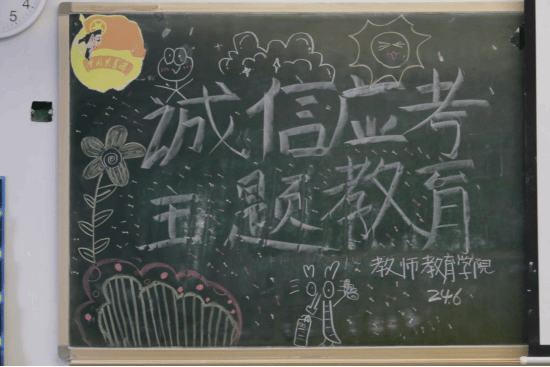 5
4
诚信应考
主题教育
教师教育学院
246